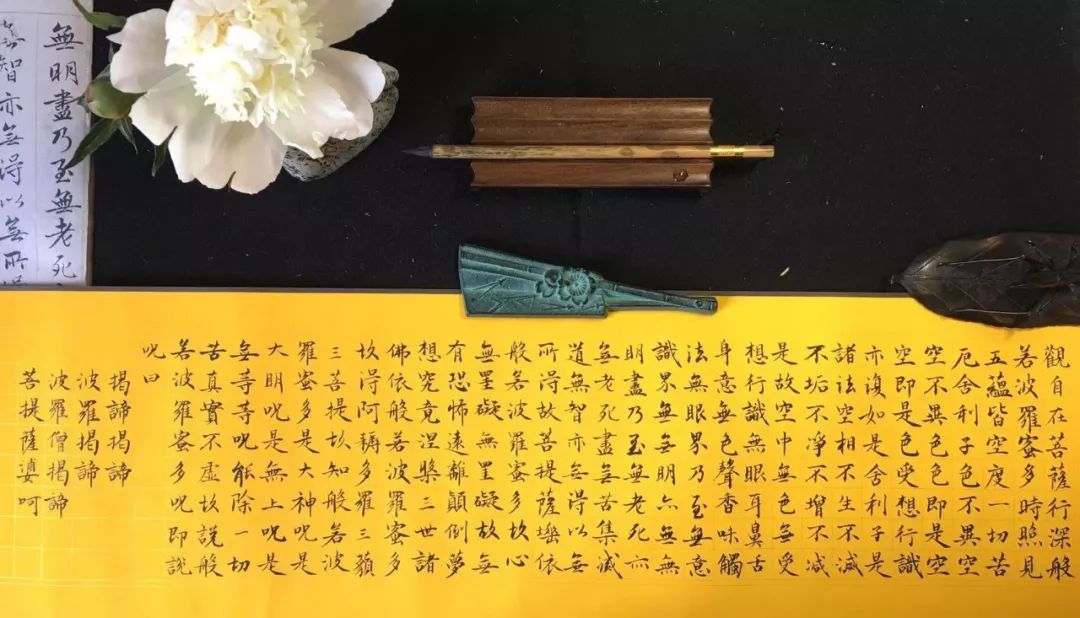 觀自在菩薩行深般
若波羅蜜多時照見
五蘊皆空度一切苦
厄舍利子色不異空
空不異色色即是空
空即是色受想行識
亦復如是舍利子是
諸法空相不生不滅
不垢不净不增不减
是故空中無色無受
想行識無眼耳鼻舌
身意無色聲香味觸
法無眼界乃至無意
識界無無明亦無無
明盡乃至無老死亦
無老死盡無苦集滅
道無智亦無得以無
所得故菩提薩埵依
般若波羅蜜多故心
無罣礙無罣礙故無
有恐怖遠離顛倒夢
想究竟涅槃三世諸
佛依般若波羅蜜多
故得阿耨多羅三藐
三菩提故知般若波
羅蜜多是大神呪是
大明呪是無上呪是
無等等呪能除一切
苦真實不虛故說般
若波羅蜜多呪即說
呪曰
揭諦揭諦
波羅揭諦
波羅僧揭諦
菩提薩婆呵
無明盡乃至無老死
智亦無得以無所